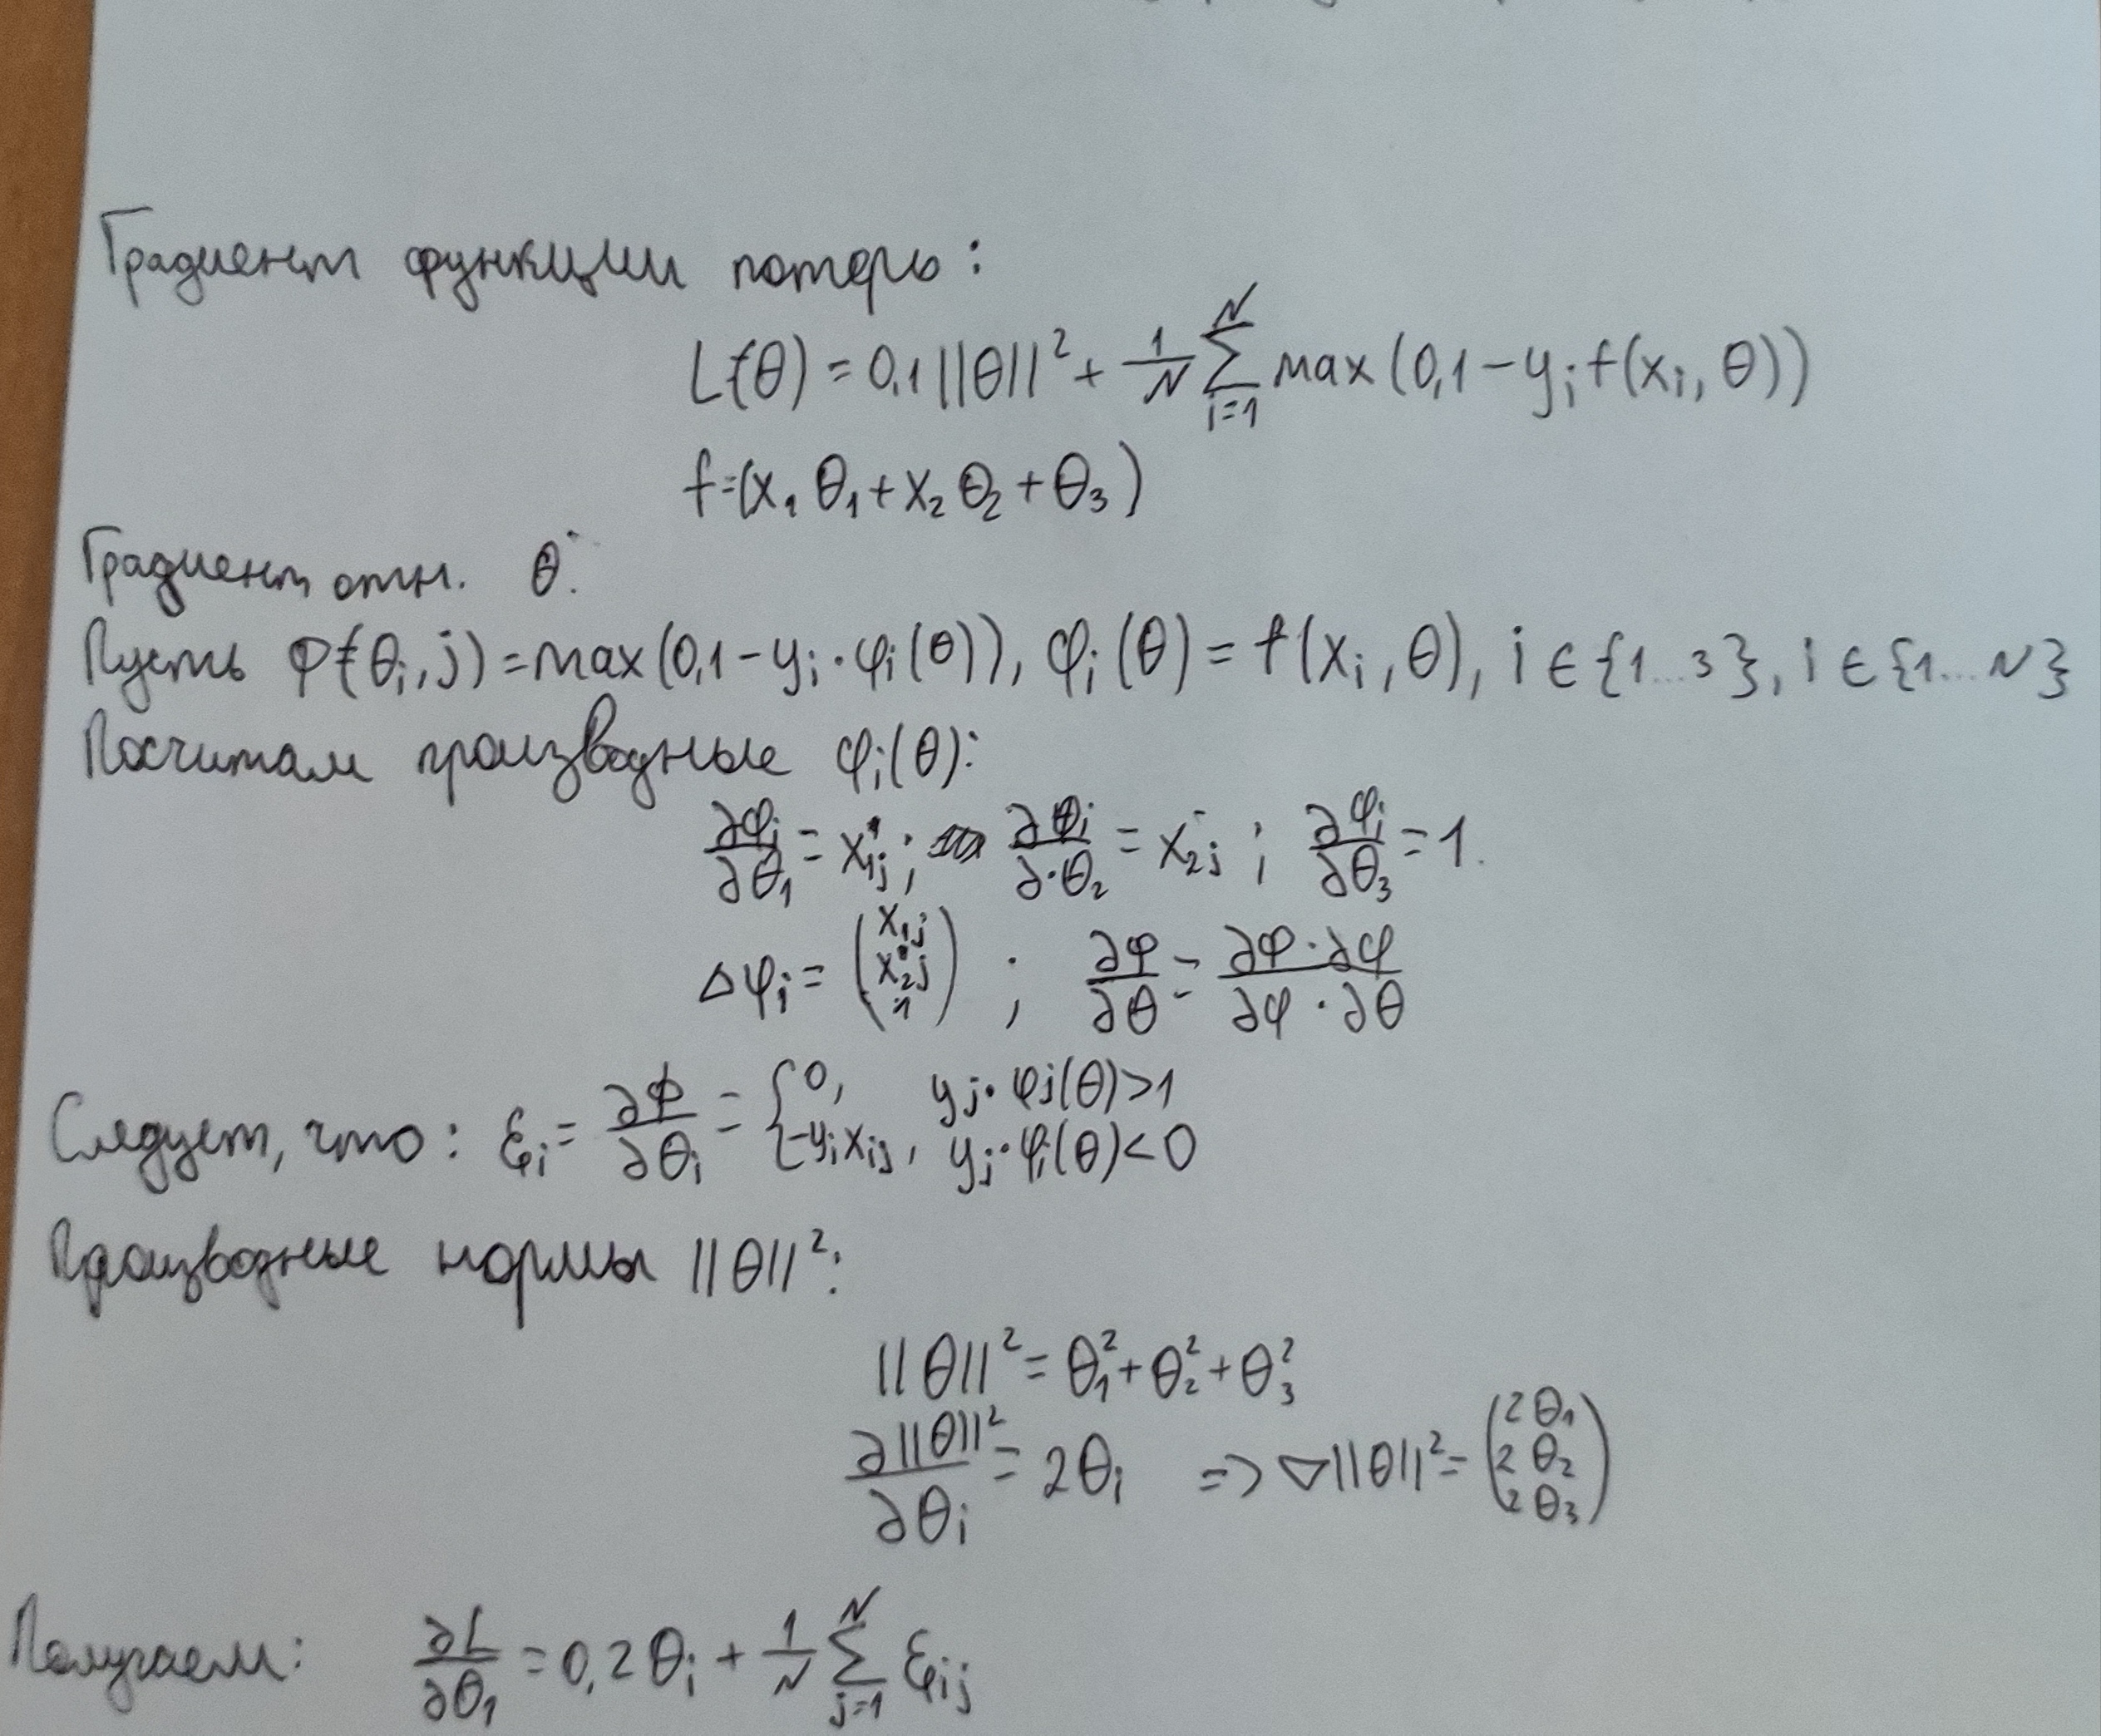 Градиент функции потерь:
L(θ) = 0,1||θ||² + 1/N ∑_{i=1}^{N} max(0,1 - y_i f(x_i, θ))
f=(x_1 θ_1 + x_2 θ_2 + θ_3)
Градиент отн. θ:
Пусть Φ(θ_i, j) = max(0,1 - y_i · φ_i(θ)), φ_i(θ) = f(x_i, θ), i ∈ {1...3}, i ∈ {1...N}
Посчитам производные φ_i(θ):
∂φ_i/∂θ_1 = x_{1j}; ∂φ_i/∂·θ_2 = x_{2j}; ∂φ_i/∂θ_3 = 1.
Δφ_i = (x_{1j} x_{2j} 1); ∂φ/∂θ = ∂φ·∂φ/∂φ·∂θ
Следует, что: ξ_i = ∂Φ/∂θ_i = {0, y_j · φ_j(θ) > 1
-y_i x_{ij}, y_j · φ_i(θ) < 0
Производные нормы ||θ||²:
||θ||² = θ_1² + θ_2² + θ_3²
∂||θ||²/∂θ_i = 2θ_i => ∇||θ||² = (2θ_1 2θ_2 2θ_3)
Получаем: ∂L/∂θ_1 = 0,2θ_i + 1/N ∑_{j=1}^{N} ξ_{ij}